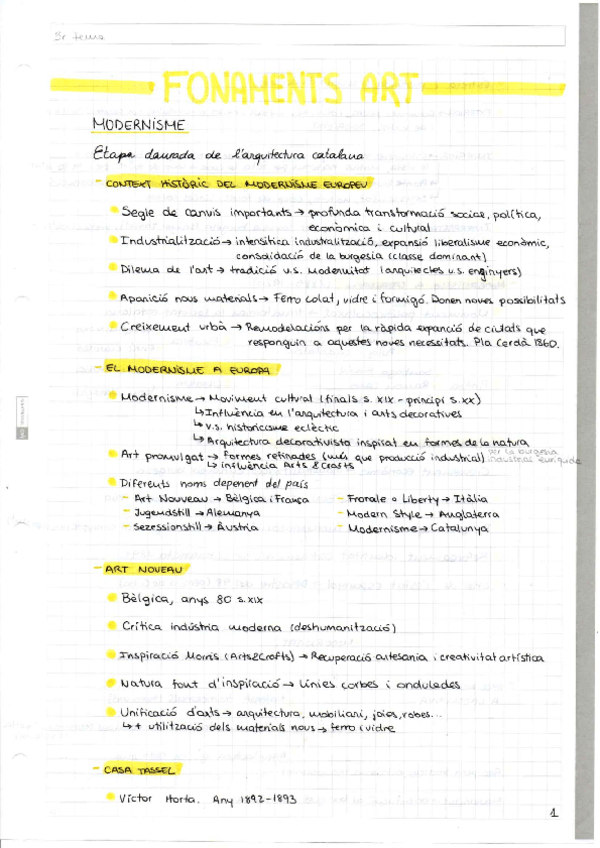 3r tema
FONAMENTS ART
MODERNISME
Etapa daurada de l'arquitectura catalana
- CONTEXT HISTÒRIC DEL MODERNISME EUROPEU
Segle de canvis importants → profunda transformació social, política,
econòmica i cultural
Industrialització → intensitica industralització, expansió liberalisme econòmic,
consolidació de la burgesia (classe dominant)
Dilema de l'art → tradició v.s. Modernitat (arquitectes v.s. enginyers)
Aparició nous materials → Ferro colat, vidre i formigó. Donen noves possibilitats
Creixement urbà → Remodelacions per la ràpida expanció de ciutats que
responguin a aquestes noves necessitats. Pla Cerdà 1860.
- EL MODERNISME A EUROPA
Modernisme → Moviment cultural (finals s. XIX - principi s.XX)
↳ Influència en l'arquitectura i arts decoratives
↳ v.s. historicisme eclèctic
↳ Arquitectura decorativista inspirat en formes de la natura
Art promulgat → formes refinades (més que producció industrial) per la burgesia
industrial euriquida
↳ influència Arts & Crafts
Diferents noms depenent del país
- Art Nouveau → Bèlgica i França
- Jugendstill → Alemanya
- Sezessionstill → Àustria
- Frorale o Liberty → Itàlia
- Modern Style → Anglaterra
- Modernisme → Catalunya
- ART NOVEAU
Bèlgica, anys 80 s.XIX
Crítica indústria moderna (deshumanització)
Inspiració Morris (Arts&Crafts) → Recuperació artesania i creativitat artística
Natura font d'inspiració → Línies corbes i ondulades
Unificació d'arts → arquitectura, mobiliari, joies, robes...
↳ + utilització dels materials nous → ferro i vidre
- CASA TASSEL
Víctor Horta. Any 1892-1893
1